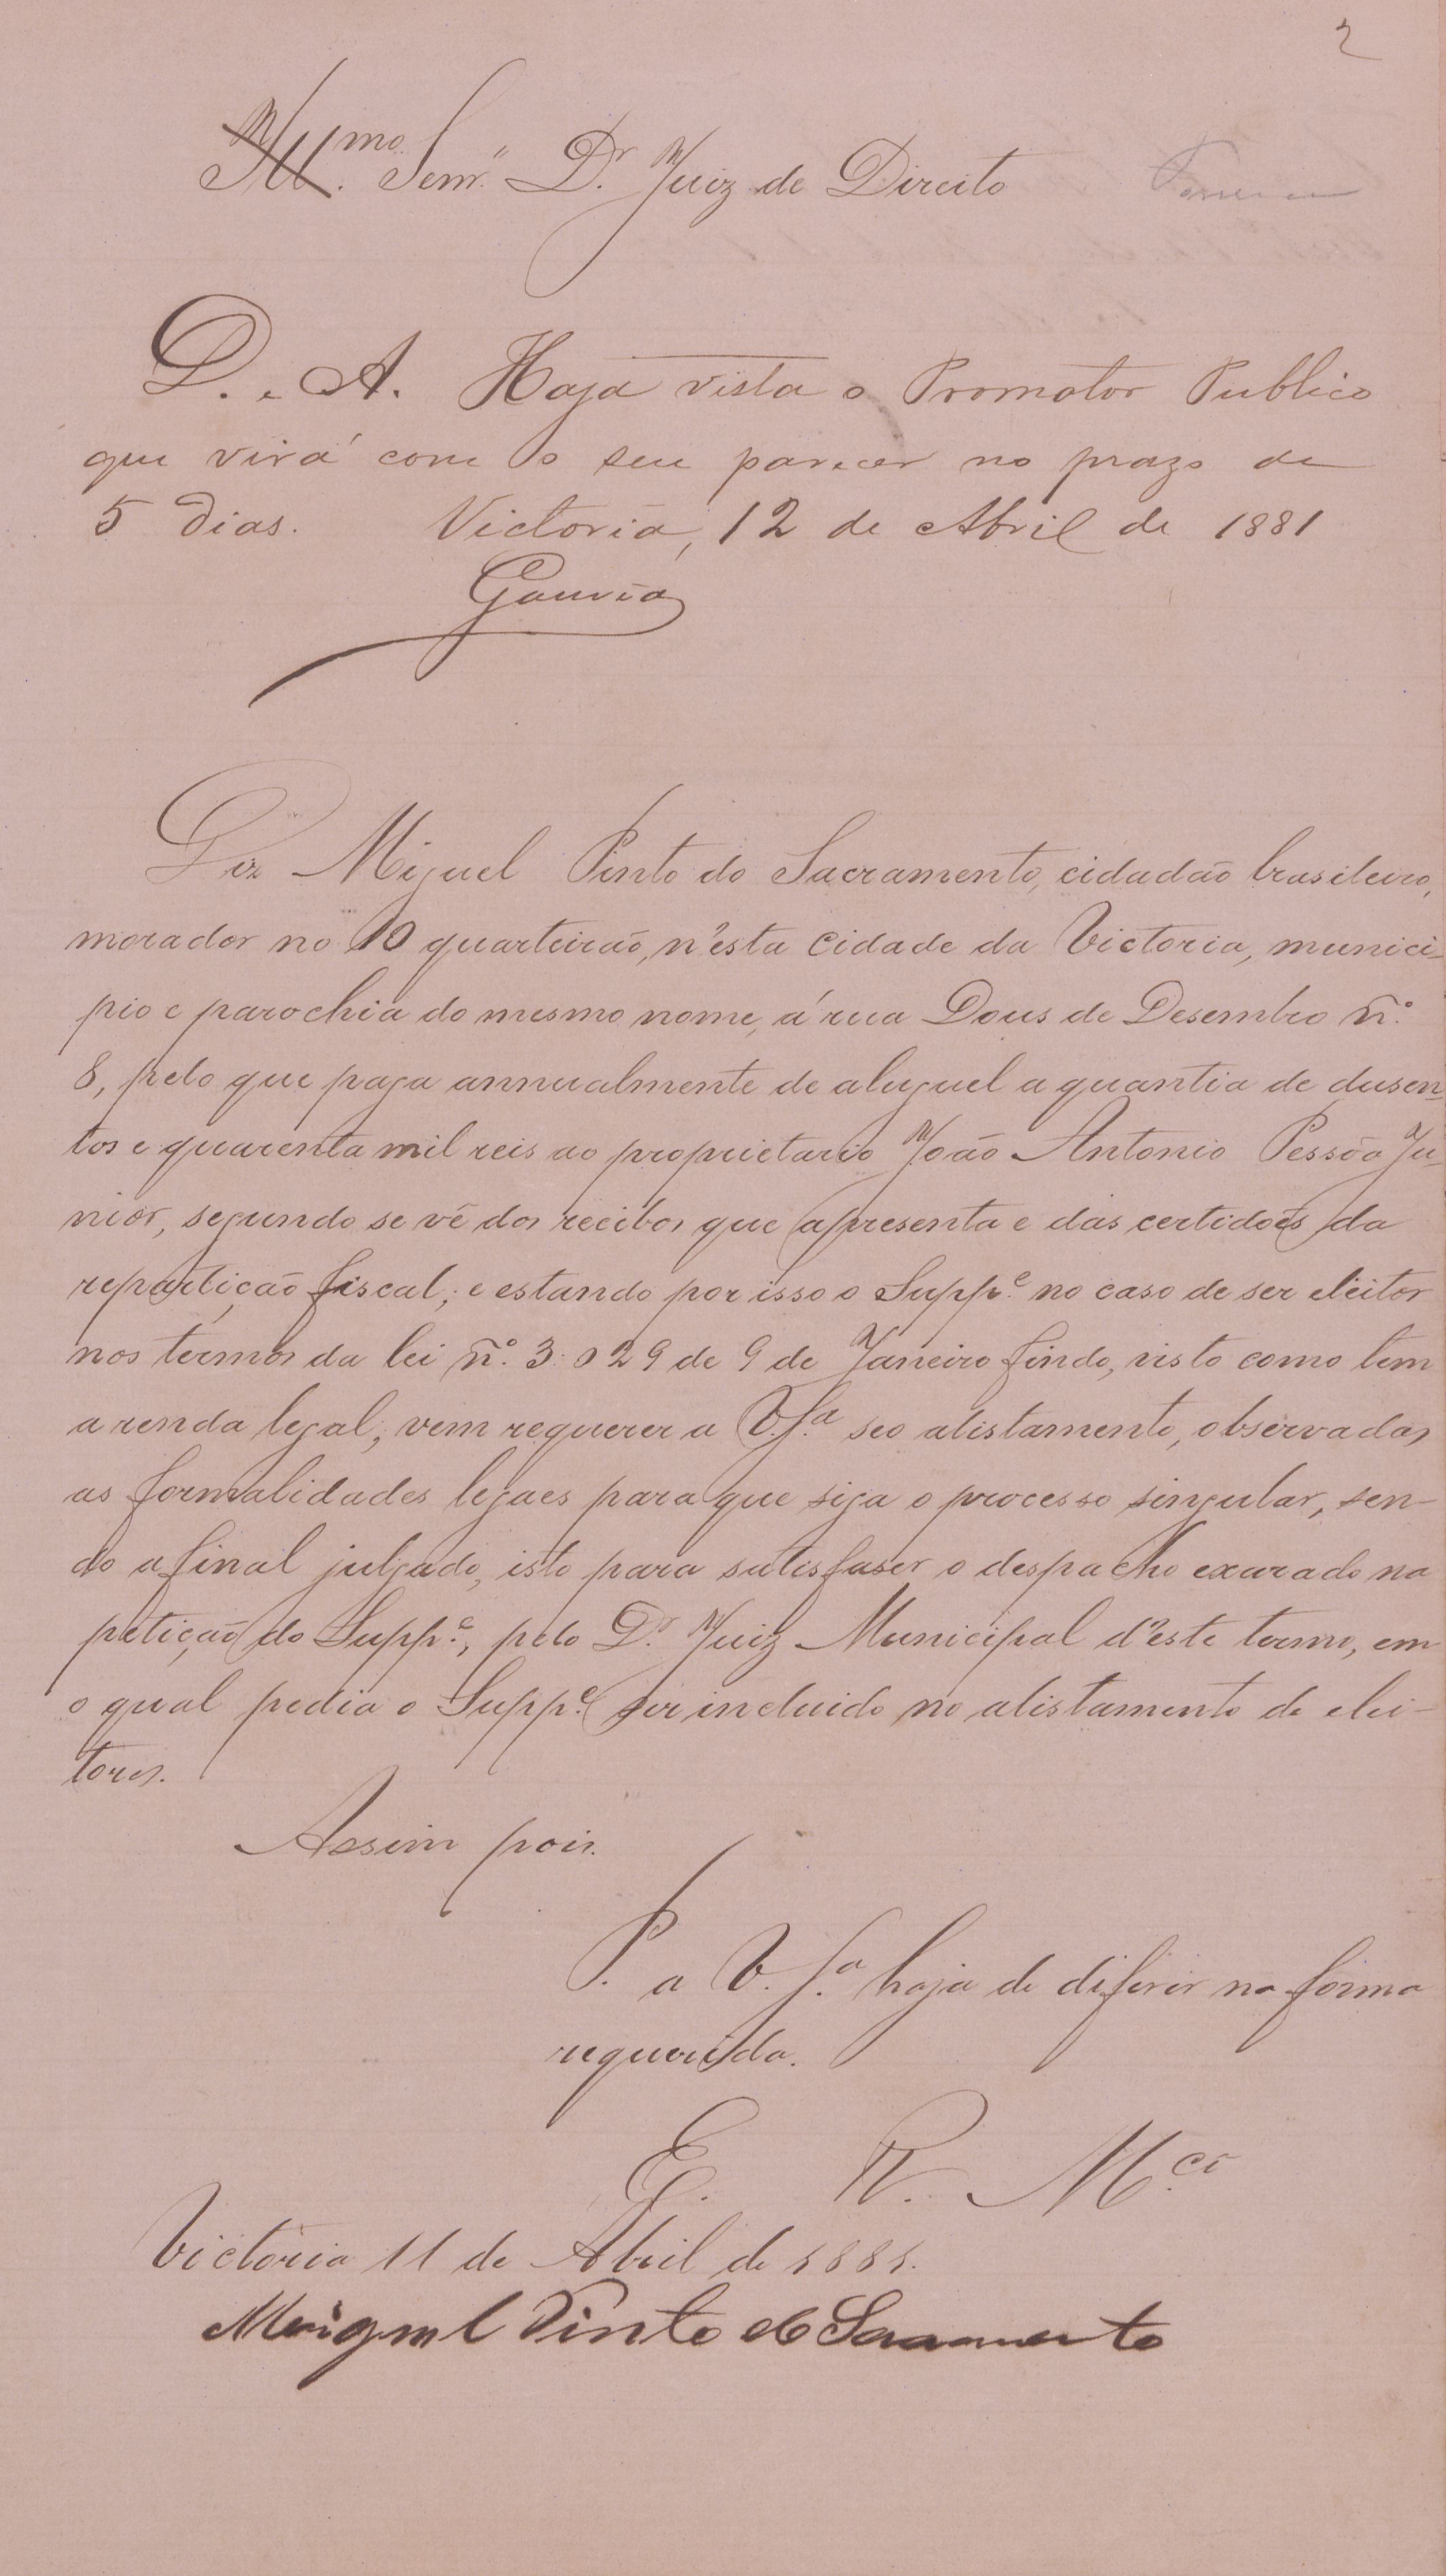 2
Ill.mo Senr. Dr. Juiz de Direito
D. e A. Haja vista o Promotor Publico
que virá com o seu parecer no prazo de
5 dias. Victoria, 12 de Abril de 1881
Gouvêa
Diz Miguel Pinto do Sacramento, cidadão brasileiro,
morador no 10 quarteirão, n'esta cidade da Victoria, munici-
pio e parochia do mesmo nome, á rua Dous de Desembro n.º
8, pelo que paga annualmente de aluguel a quantia de dusen-
tos e quarenta mil reis ao proprietario João Antonio Pessôa Ju-
nior, segundo se vê dos recibos que apresenta e das certidoẽs da
repartição fiscal; e estando por isso o Supp.e no caso de ser eleitor
nos termos da lei n.º 3:029 de 9 de Janeiro findo, visto como tem
a renda legal, vem requerer a V.S.a seo alistamento, observadas
as formalidades legaes para que siga o processo singular, sen-
do afinal julgado, isto para satisfaser o despacho exarado na
petição do Supp.e, pelo Dr. Juiz Municipal d'este termo, em
o qual pedia o Supp.e ser incluido no alistamento de elei-
tores.
Assim pois.
P. a V.S.a haja de diferir na forma
requerida.
E. R. M.ce
Victoria 11 de Abril de 1881.
Miguel Pinto do Sacramento